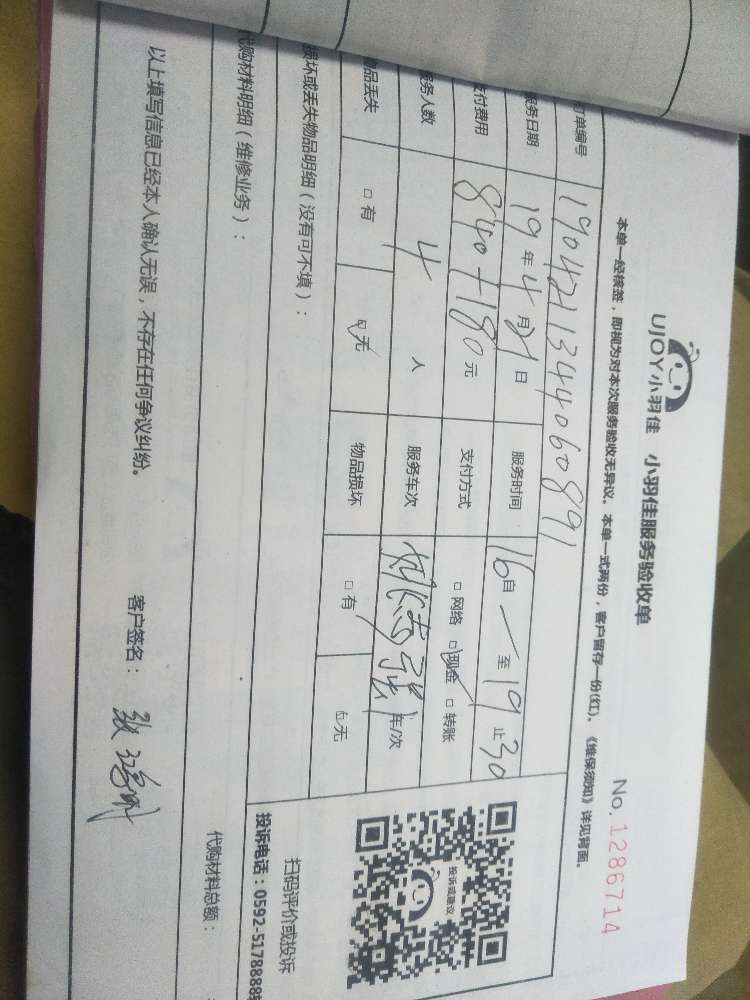 UJOY小羽佳 小羽佳服务验收单 No. 1286714
本单一经核签，即视为对本次服务验收无异议。本单一式两份，客户留存一份(红)。《维保须知》详见背面。
订单编号 190421344060891
服务日期 19年4月21日 服务时间 16自 至19 止30
支付费用 840+180元 支付方式 □网络 ☑现金 □转账
服务人数 4人 服务车次 车/次
物品丢失 □有 ☑无 物品损坏 □有 ☑无
损坏或丢失物品明细（没有可不填）：
投诉或建议
扫码评价或投诉
投诉电话：0592-5178888
代购材料明细（维修业务）：
代购材料总额：
以上填写信息已经本人确认无误，不存在任何争议纠纷。 客户签名：